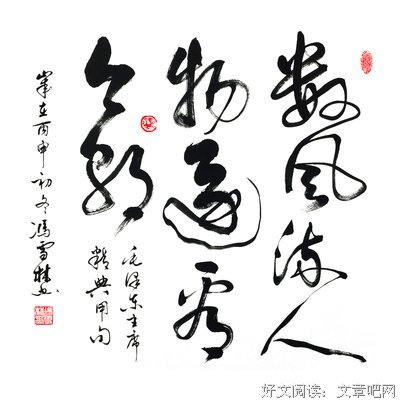 数风流人
物还看
今朝
毛泽东主席
精典用句
岁在丙申初冬冯雪书
好文阅读：文章吧网